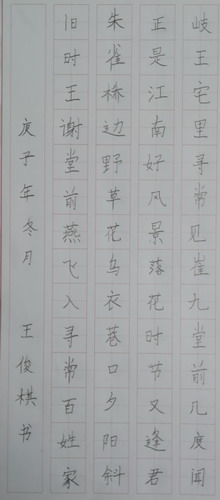 岐王宅里寻常见崔九堂前几度闻
正是江南好风景落花时节又逢君
朱雀桥边野草花乌衣巷口夕阳斜
旧时王谢堂前燕飞入寻常百姓家
庚子年冬月 王俊棋书